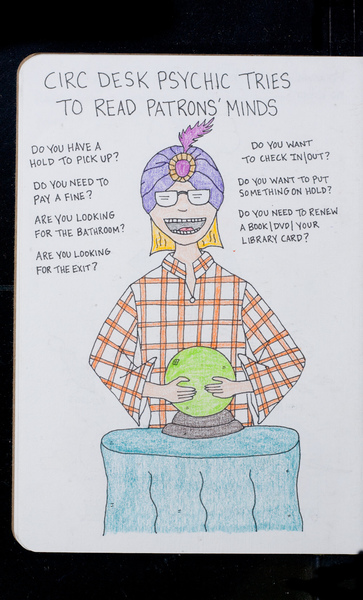 CIRC DESK PSYCHIC TRIES
TO READ PATRONS' MINDS
DO YOU HAVE A
HOLD TO PICK UP?
DO YOU NEED TO
PAY A FINE?
ARE YOU LOOKING
FOR THE BATHROOM?
ARE YOU LOOKING
FOR THE EXIT?
DO YOU WANT
TO CHECK IN/OUT?
DO YOU WANT TO PUT
SOMETHING ON HOLD?
DO YOU NEED TO RENEW
A BOOK/DVD/YOUR
LIBRARY CARD?